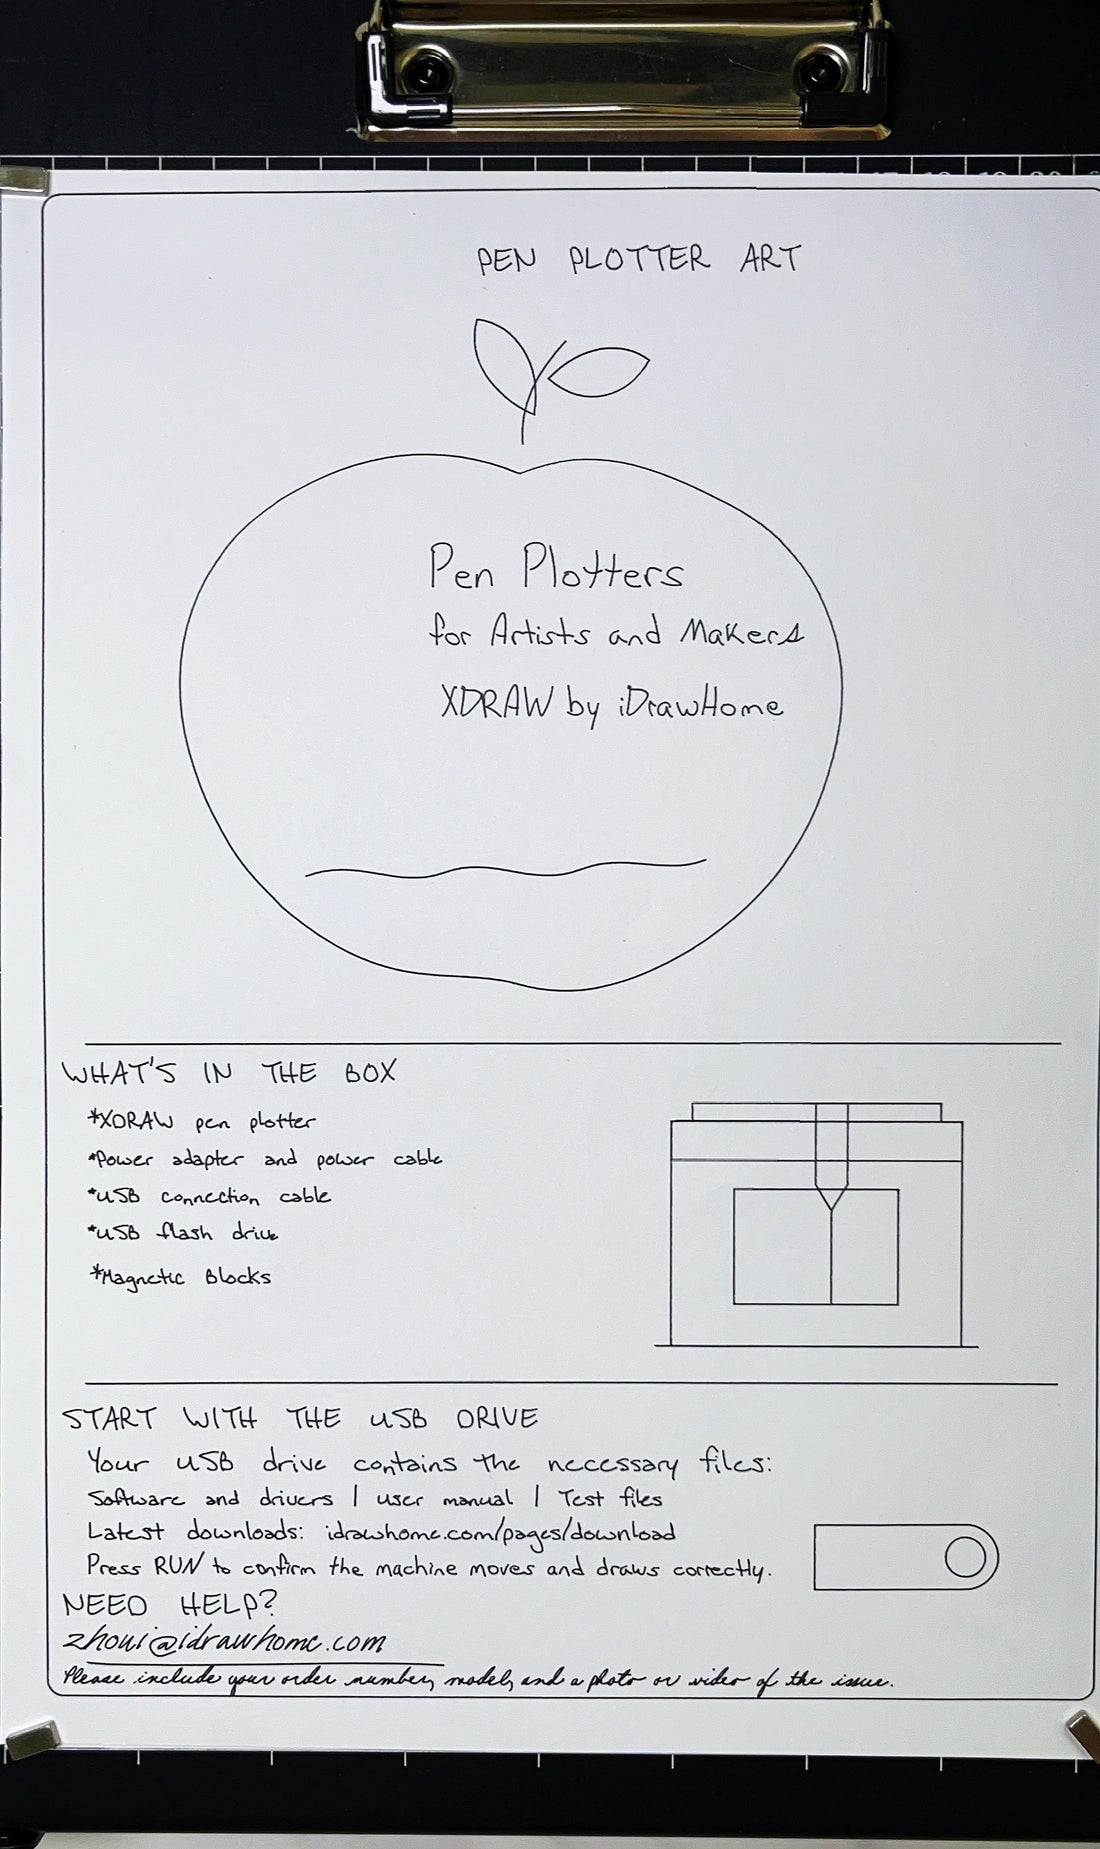 PEN PLOTTER ART
Pen Plotters
for Artists and Makers
XDRAW by iDrawHome
WHAT'S IN THE BOX
*XDRAW pen plotter
*Power adapter and power cable
*USB connection cable
*USB flash drive
*Magnetic Blocks
START WITH THE USB DRIVE
Your USB drive contains the necessary files:
Software and drivers | user manual | Test files
Latest downloads: idrawhome.com/pages/download
Press RUN to confirm the machine moves and draws correctly.
NEED HELP?
zhoui@idrawhome.com
Please include your order number, model, and a photo or video of the issue.